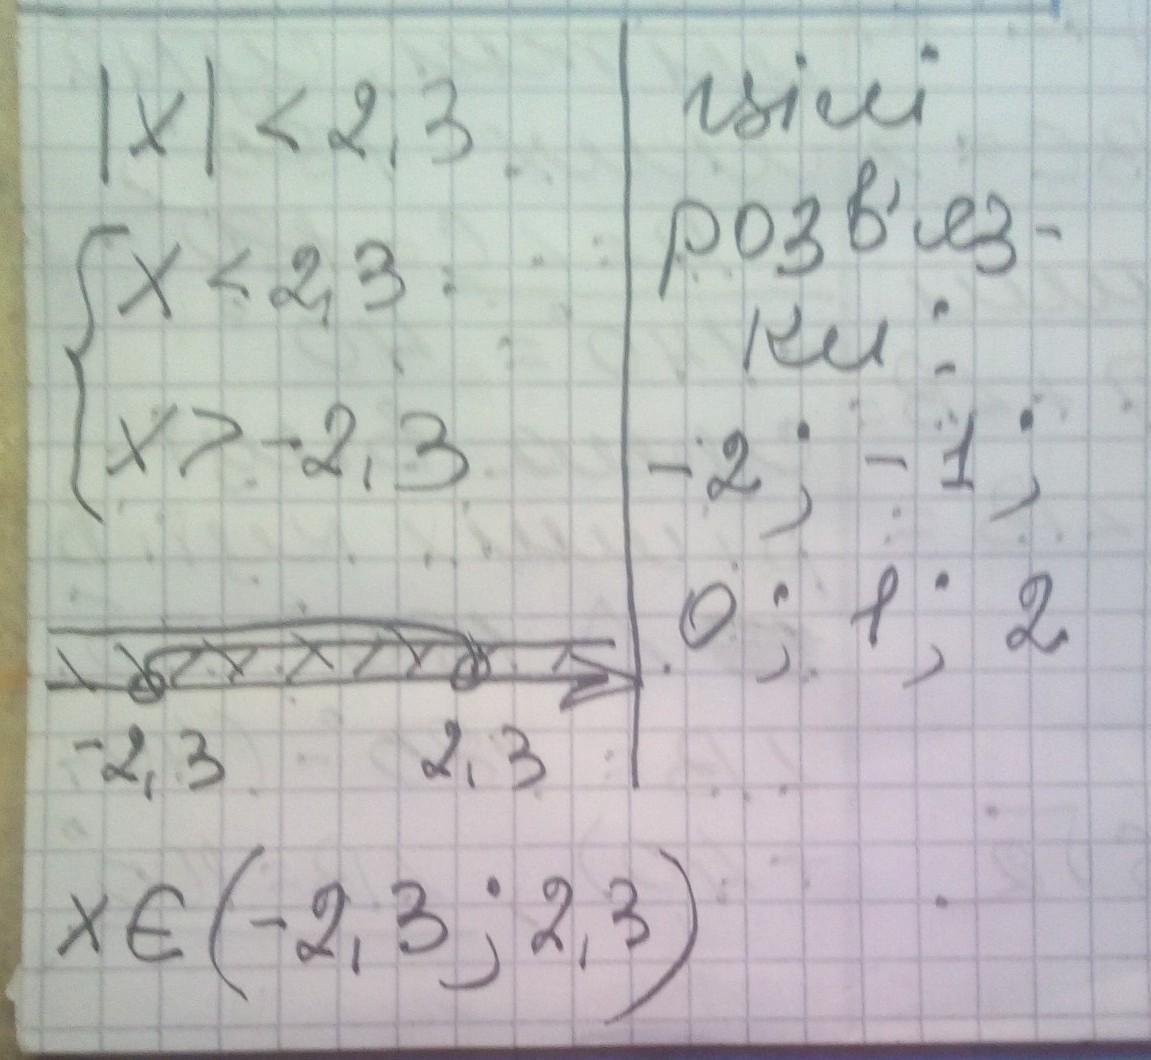 |x| < 2,3
{ x < 2,3
x > -2,3
-2,3 2,3
x ∈ (-2,3; 2,3)
цілі
розв'яз-
ки:
-2; -1;
0; 1; 2